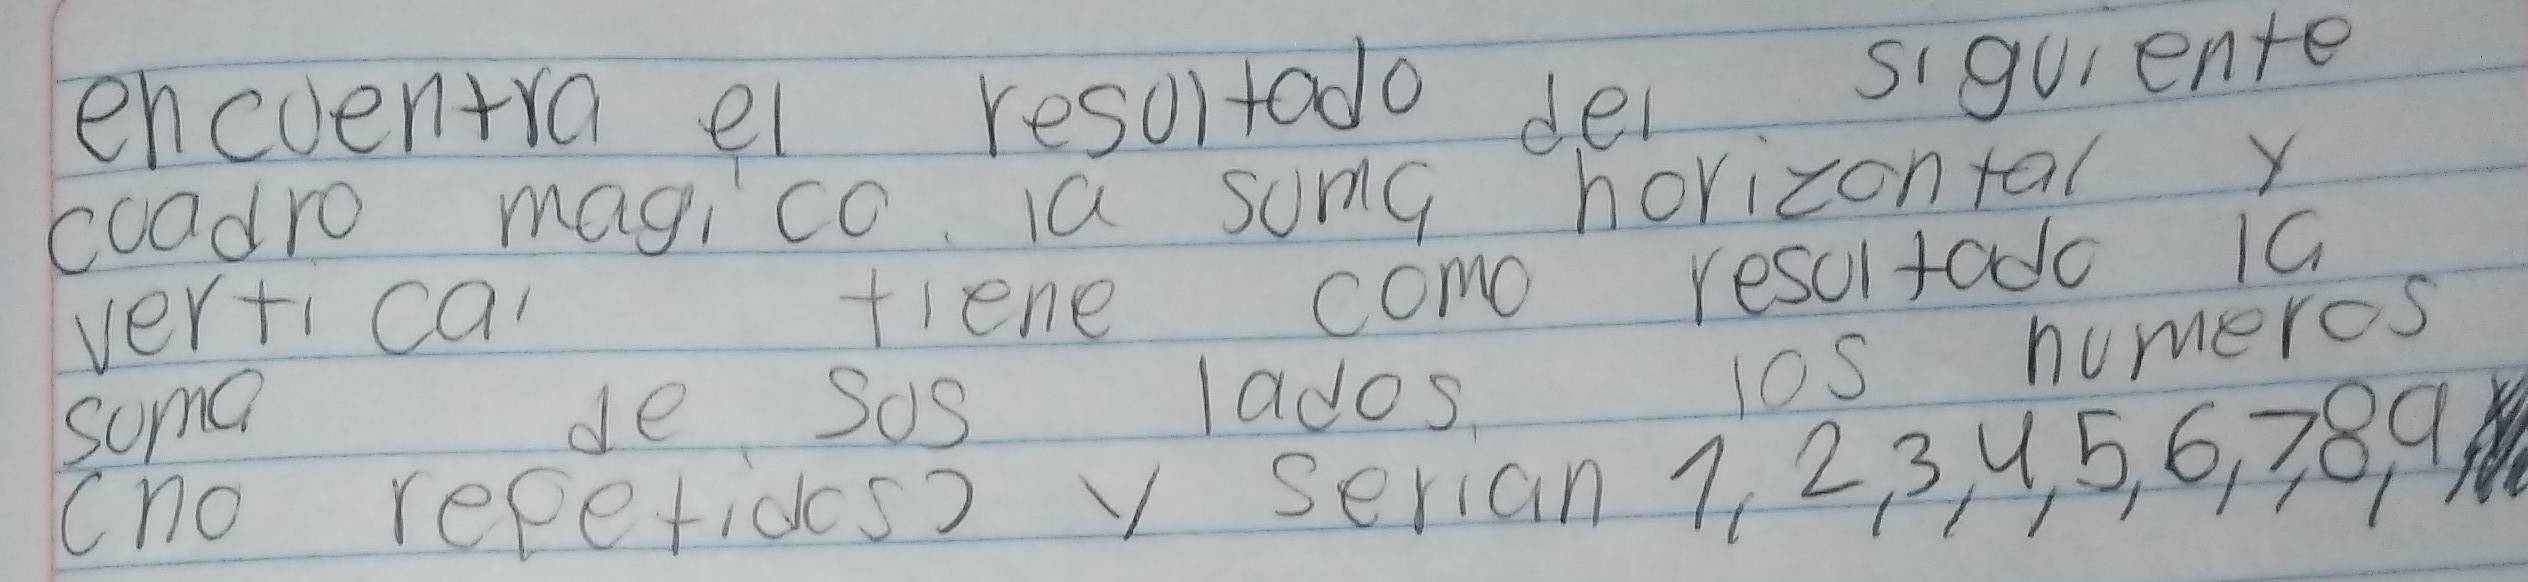 encuentra el resultado del siguiente
cuadro magico. la suma horizontal y
vertical tiene como resultado la
suma de sus lados, los numeros
(no repetidos) y serian 1, 2, 3, 4, 5, 6, 7, 8, 9,